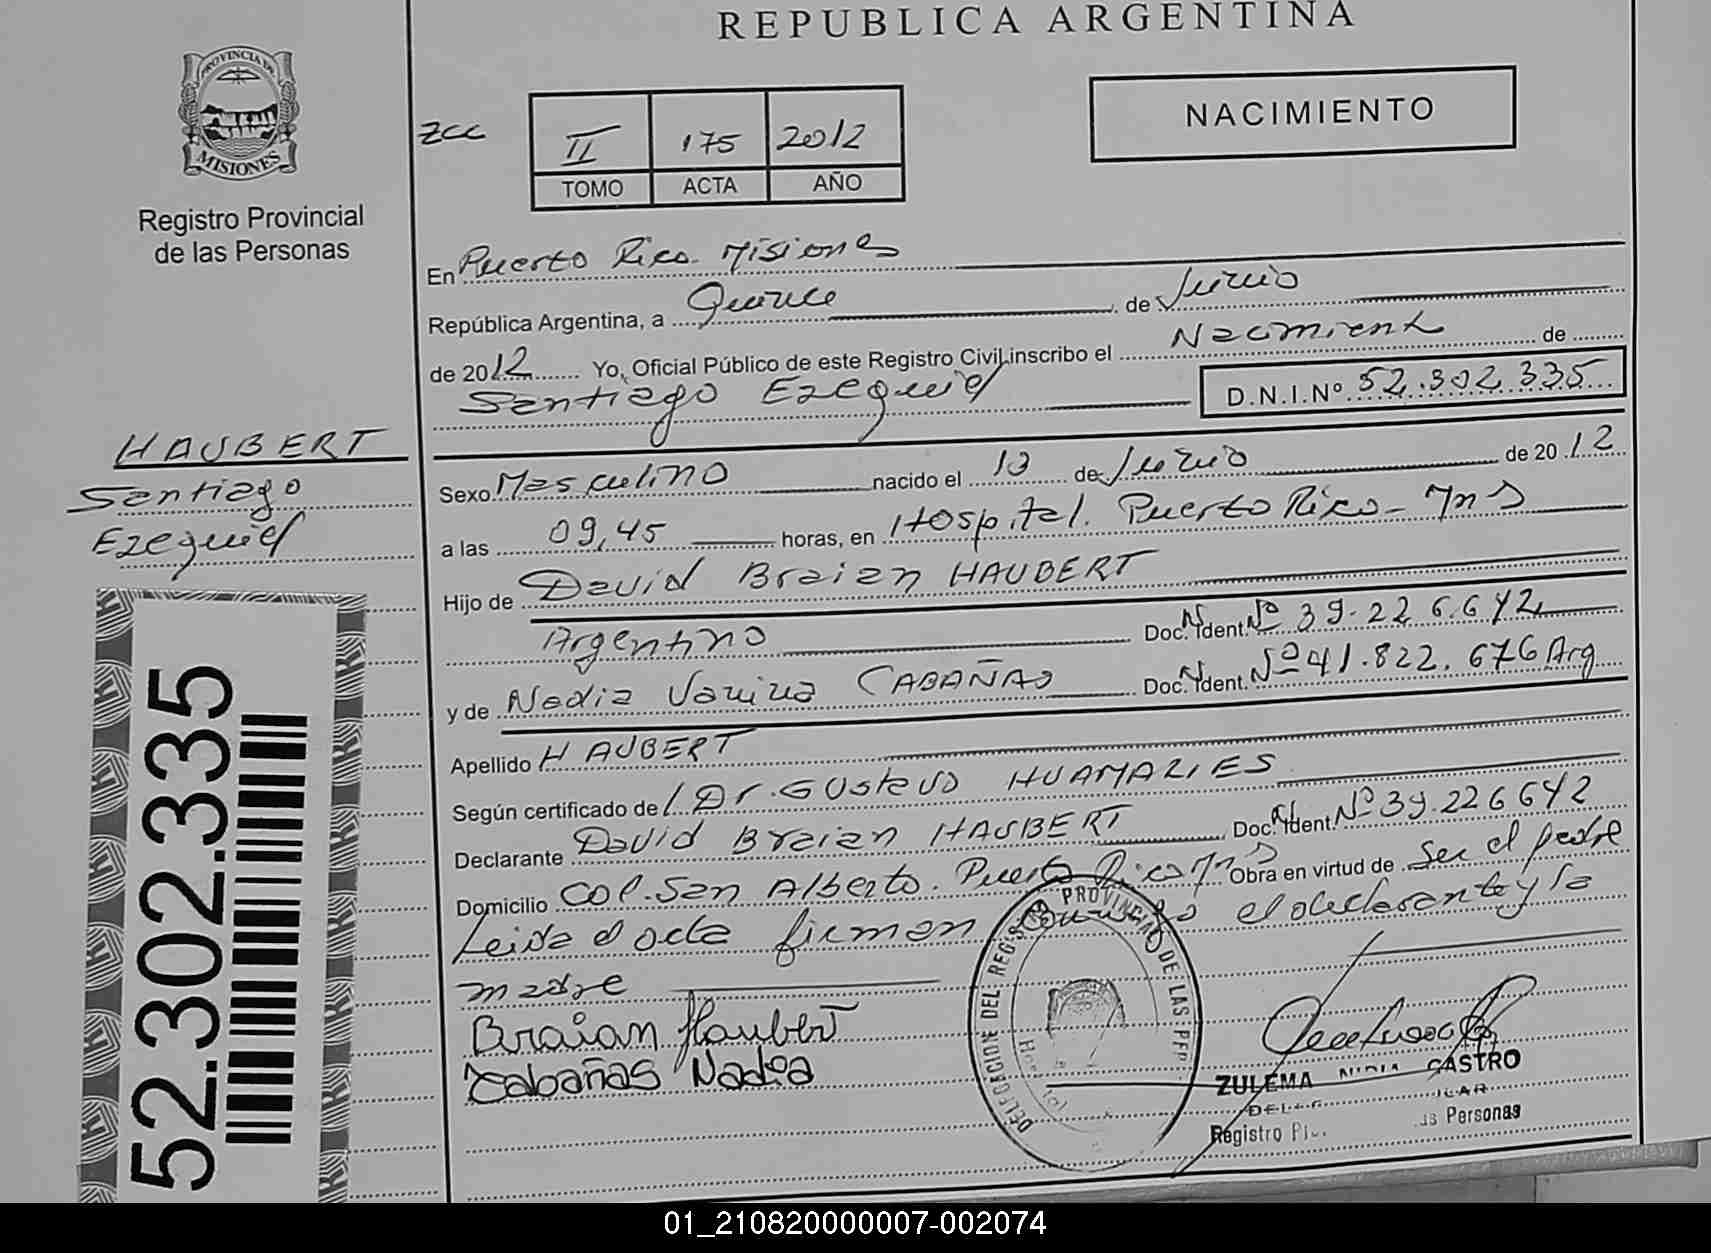 REPUBLICA ARGENTINA
PROVINCIA DE
MISIONES
Registro Provincial
de las Personas
zcc
II 175 2012
TOMO ACTA AÑO
NACIMIENTO
En Puerto Rico. Misiones
República Argentina, a Quince de Junio
de 2012 Yo, Oficial Público de este Registro Civil inscribo el Nacimiento de
Santiago Ezequiel D.N.I.Nº 52.302.335
HAUBERT
Santiago
Ezequiel
Sexo Masculino nacido el 13 de Junio de 2012
a las 09,45 horas, en Hospital. Puerto Rico - Mns
Hijo de David Braian HAUBERT
Argentino Doc. Ident. Nº 39.226.642
y de Nadia Vanina CABAÑAS Doc. Ident. Nº 41.822.676 Arg
Apellido HAUBERT
Según certificado de / Dr. Gustavo HUAMALIES
Declarante David Braian HAUBERT Doc. Ident. Nº 39.226642
Domicilio Col. San Alberto. Puerto Rico Mns Obra en virtud de ser el padre
Leida el acta firman el declarante y la
madre
Braian Haubert
Cabañas Nadia
52.302.335
DELEGACION DEL REGISTRO PROVINCIAL DE LAS PER
ZULEMA CASTRO
Registro Personas
01_210820000007-002074